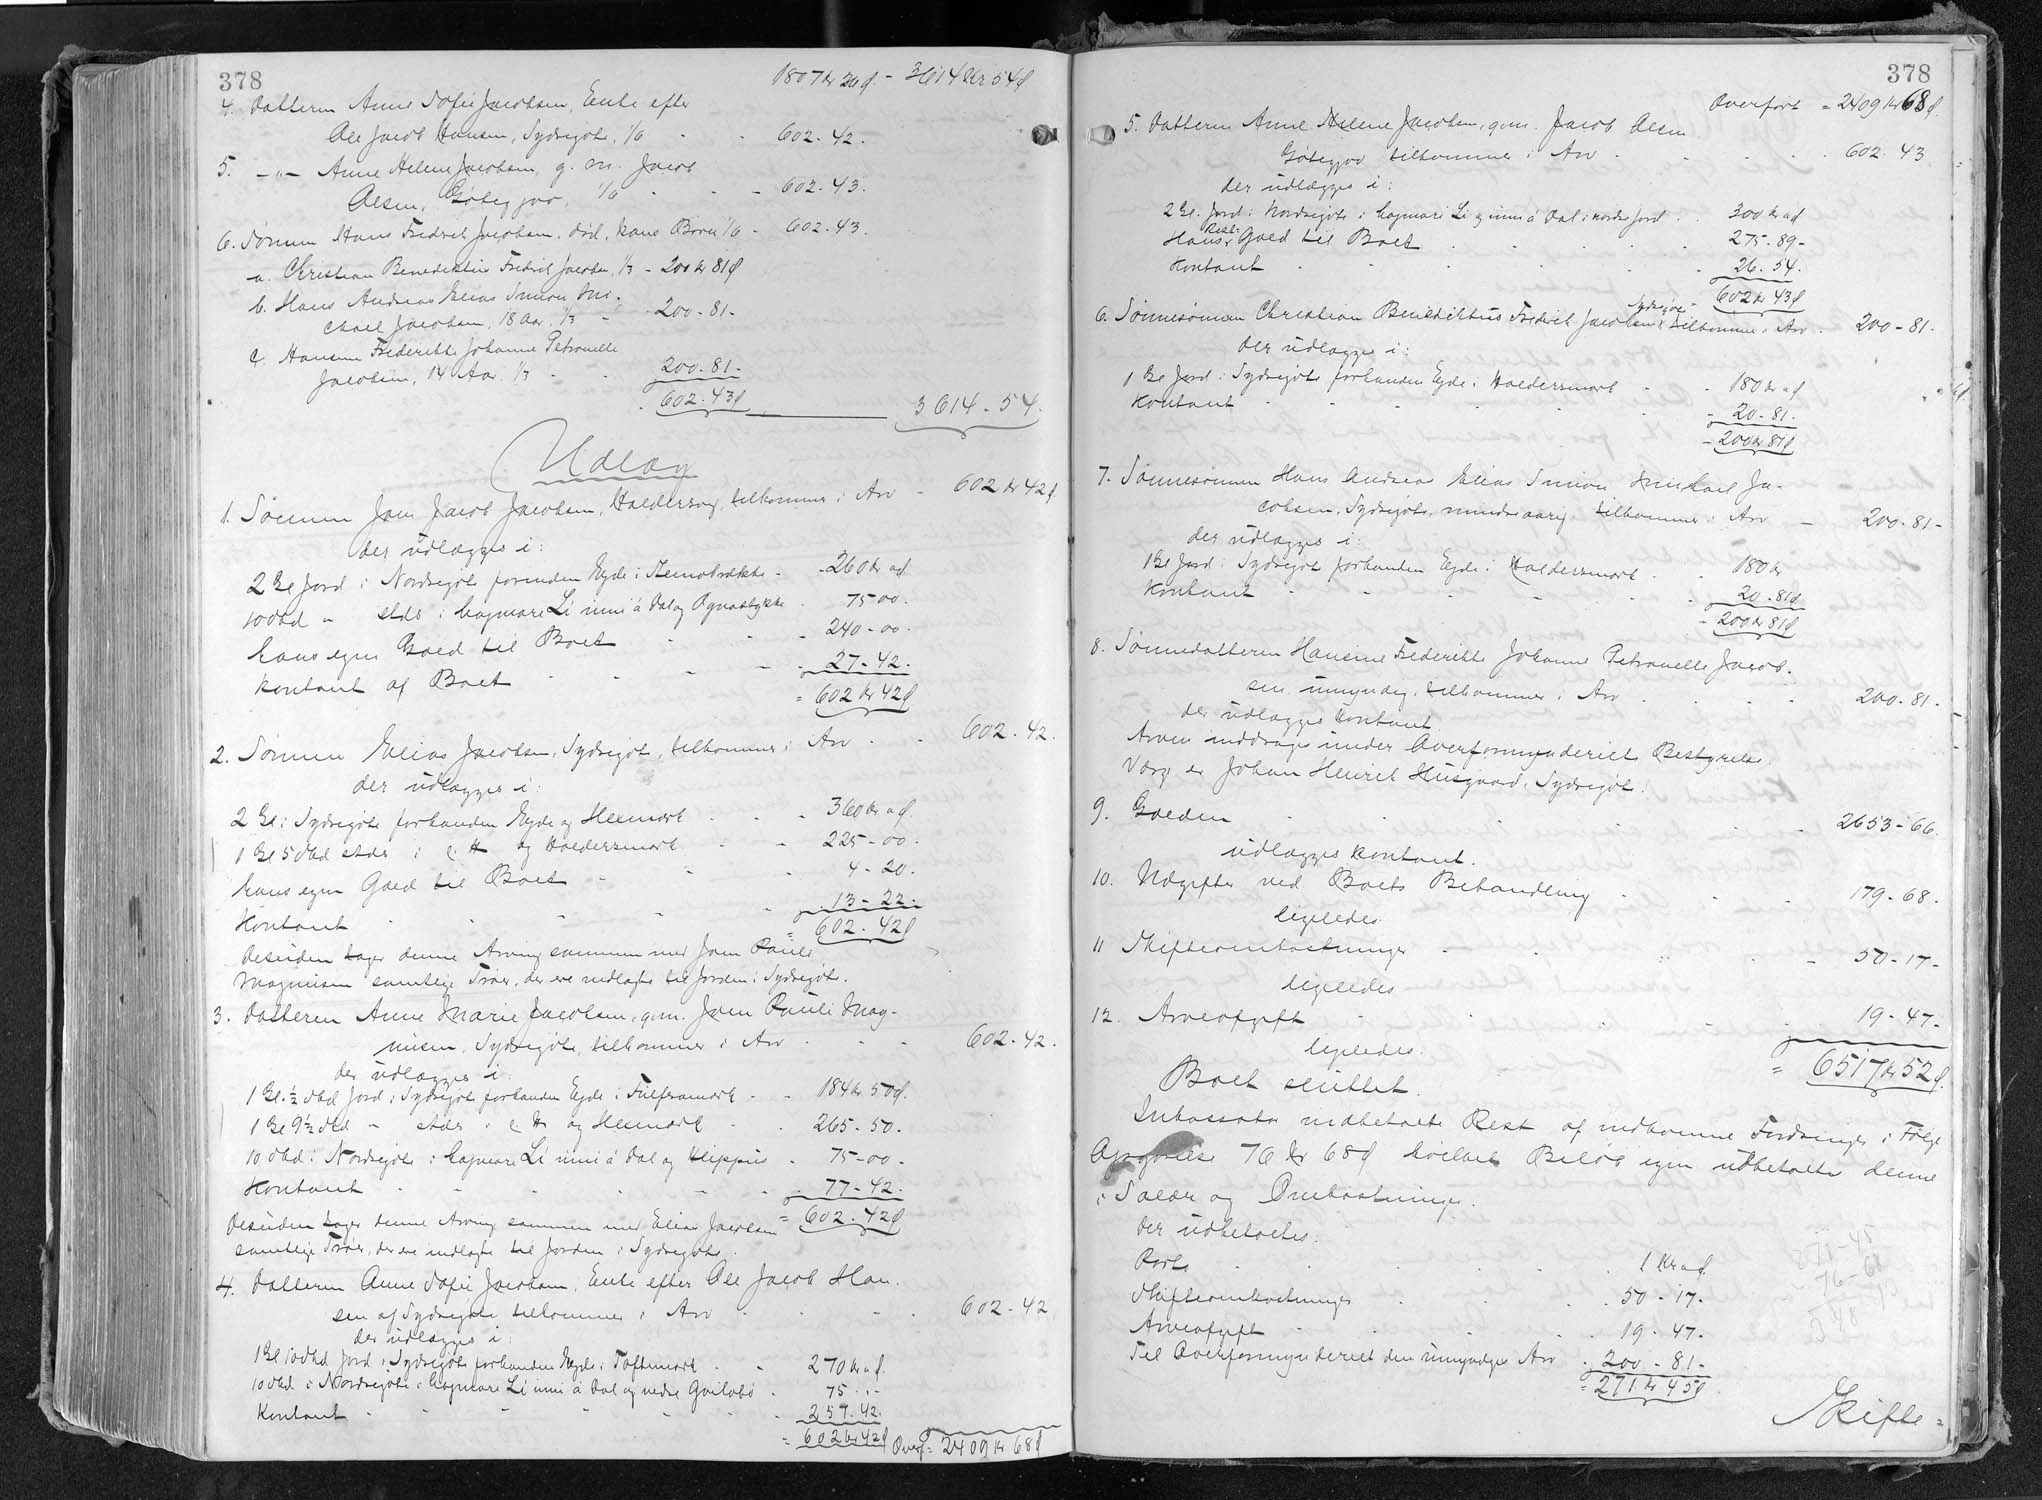 378
1807 kr 26 ø. - 3614 kr 54 ø
4. Datteren Anne Sofie Jacobsen, Enke efter
Ole Jacob Hansen, Sydregöte, 1/6 - - 602-42.
5. -"- Anne Helene Jacobsen, g. m. Jacob
Olsen, Götegjov, 1/6 - - 602-43.
6. Sönnen Hans Fredrik Jacobsen, död, hans Børn 1/6 - 602-43.
a. Christian Benediktus Fredrik Jacobsen, 1/3 - 200 kr 81 ø
b. Hans Andreas Elias Simon Mi-
chael Jacobsen, 18 Aar, 1/3 - 200-81-
c. Hansine Frederikke Johanne Petronelle
Jacobsen, 14 Aar. 1/3 - - 200-81-
602-43 ø 3614-54.
Udlæg
1. Sönnen Joen Jacob Jacobsen, tilkommer i Arv - 602 kr 42 ø
der udlægges i:
2 Gl Jord i Nordregöte Egde i - 260 kr " ø
10 Skd " stds i hagmare Li inni á Dal og - 75-00.
hans egen Gæld til Boet - - - 240-00.
kontant af Boet - - - 27-42.
= 602 kr 42 ø
2. Sönnen Elias Jacobsen, Sydregöte, tilkommer i Arv - - 602-42.
der udlægges i:
2 Gl i Sydregöte forhanden Egde og Heimark - - 360 kr " ø.
1 Gl 5 Skd stds i og - - 225-00.
hans egen Gæld til Boet - - - 4-20.
Kontant - - - - 13-22.
= 602-42 ø
desuden tager denne Arving sammen med Joen Pauli
Magnusen samtlige Tröer, der ere indlagte til Jorden i Sydregöte.
3. Datteren Anne Marie Jacobsen, g. m. Joen Pauli Mag-
nusen, Sydregöte, tilkommer i Arv - - - 602-42.
der udlægges i:
1 Gl. ½ Skd Jord i Sydregöte forhanden Egde i - - 184 kr 50 ø.
1 Gl 9½ Skd " stds i og Heimark - - 265-50.
10 Skd i Nordregöte i hagmare Li inni á Dal og Klippus - 75-00-
Kontant - - - - - 77-42.
desuden tager denne Arving sammen med Elias Jacobsen = 602-42 ø
samtlige Tröer, der ere indlagte til Jorden i Sydregöte.
4. Datteren Anne Sofie Jacobsen, Enke efter Ole Jacob Han-
sen af Sydregöte tilkommer i Arv - - - 602-42
der udlægges i:
1 Gl 10 Skd Jord i Sydregöte forhanden Egde i Toftemark - - 270 kr " ø.
10 Skd i Nordregöte i hagmare Li inni á Dal og nedre - 75-"-
Kontant - - - - - 257-42.
= 602 kr 42 ø Overf = 2409 kr 68 ø
378
Overfört = 2409 kr 68 ø.
5. Datteren Anne Helene Jacobsen, g. m. Jacob Olsen
Götegjov tilkommer i Arv - - - 602-43
der udlægges i:
2 Gl. Jord i Nordregöte i hagmare Li og inni á Dal i nordre Jord - 300 kr " ø
Rest
Hans Gæld til Boet - - - 275-89-
Kontant - - - - 26-54.
602 kr 43 ø
Sydregöte
6. Sönnesönnen Christian Benediktus Fredrik Jacobsen tilkommer i Arv - 200-81-
der udlægges i:
1 Gl Jord i Sydregöte forhanden Egde i - - 180 kr " ø
Kontant - - - - - 20-81.
- 200 kr 81 ø
7. Sönnesönnen Hans Andreas Elias Simon Michael Ja-
cobsen, Sydregöte, mindreaarig tilkommer i Arv - 200-81-
der udlægges i:
1 Gl Jord i Sydregöte forhanden Egde i - - 180 kr
Kontant - - - - - 20-81 ø
- 200 kr 81 ø
8. Sönnedatteren Hansine Frederikke Johanne Petronelle Jacob-
sen umyndig, tilkommer i Arv - - - 200-81-
der udlægges kontant
Arven inddrages under Overformynderiets Bestyrelse
Værge er Johan Henrik Husgaard, Sydregöte.
9. Gælden - - - - 2653-66.
udlægges kontant.
10. Udgifter ved Boets Behandling - - - 179-68.
ligeledes
11 Skifteomkostninger - - - - 50-17-
ligeledes
12. Arveafgift - - - - 19-47-
ligeledes.
= 6517 kr 52 ø.
Boet sluttet.
Inkassator indbetalte Rest af indkomne Fordringer i Følge
Opgørelse 76 kr 68 ø hvilket Beløb igen udbetaltes denne
i Salær og Omkostninger.
der udbetaltes:
Porto - - - - - 1 kr " ø.
Skifteomkostninger - - - 50-17-
Arveafgift - - - - 19-47-
Til Overformynderiet den umyndiges Arv - 200-81-
= 271 kr 45 ø
271-45
76-68
Skifte =